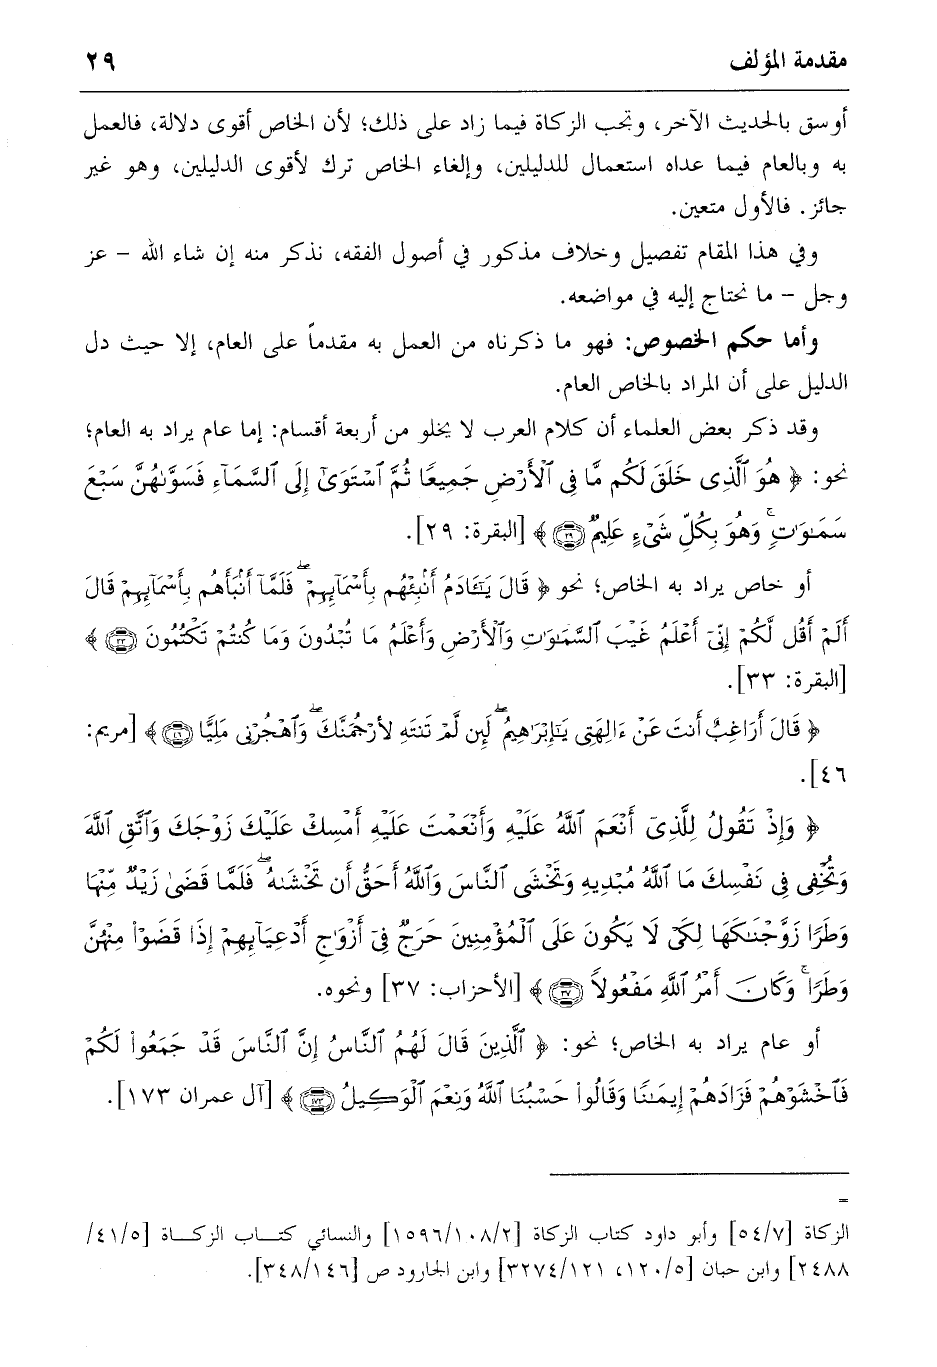 مقدمة المؤلف ٢٩
أوسق بالحديث الآخر، وتجب الزكاة فيما زاد على ذلك؛ لأن الخاص أقوى دلالة، فالعمل
به وبالعام فيما عداه استعمال للدليلين، وإلغاء الخاص ترك لأقوى الدليلين، وهو غير
جائز. فالأول متعين.
وفي هذا المقام تفصيل وخلاف مذكور في أصول الفقه، نذكر منه إن شاء الله – عز
وجل – ما نحتاج إليه في مواضعه.
وأما حكم الخصوص: فهو ما ذكرناه من العمل به مقدماً على العام، إلا حيث دل
الدليل على أن المراد بالخاص العام.
وقد ذكر بعض العلماء أن كلام العرب لا يخلو من أربعة أقسام: إما عام يراد به العام؛
نحو: ﴿ هُوَ ٱلَّذِى خَلَقَ لَكُم مَّا فِى ٱلْأَرْضِ جَمِيعًا ثُمَّ ٱسْتَوَىٰٓ إِلَى ٱلسَّمَآءِ فَسَوَّىٰهُنَّ سَبْعَ
سَمَـٰوَٰتٍ ۚ وَهُوَ بِكُلِّ شَىْءٍ عَلِيمٌ ٢٩ ﴾ [البقرة: ٢٩].
أو خاص يراد به الخاص؛ نحو ﴿ قَالَ يَـٰٓـَٔادَمُ أَنۢبِئْهُم بِأَسْمَآئِهِمْ ۖ فَلَمَّآ أَنۢبَأَهُم بِأَسْمَآئِهِمْ قَالَ
أَلَمْ أَقُل لَّكُمْ إِنِّىٓ أَعْلَمُ غَيْبَ ٱلسَّمَـٰوَٰتِ وَٱلْأَرْضِ وَأَعْلَمُ مَا تُبْدُونَ وَمَا كُنتُمْ تَكْتُمُونَ ٣٣ ﴾
[البقرة: ٣٣].
﴿ قَالَ أَرَاغِبٌ أَنتَ عَنْ ءَالِهَتِى يَـٰٓإِبْرَٰهِيمُ ۖ لَئِن لَّمْ تَنتَهِ لَأَرْجُمَنَّكَ ۖ وَٱهْجُرْنِى مَلِيًّا ٤٦ ﴾ [مريم:
٤٦].
﴿ وَإِذْ تَقُولُ لِلَّذِىٓ أَنْعَمَ ٱللَّهُ عَلَيْهِ وَأَنْعَمْتَ عَلَيْهِ أَمْسِكْ عَلَيْكَ زَوْجَكَ وَٱتَّقِ ٱللَّهَ
وَتُخْفِى فِى نَفْسِكَ مَا ٱللَّهُ مُبْدِيهِ وَتَخْشَى ٱلنَّاسَ وَٱللَّهُ أَحَقُّ أَن تَخْشَىٰهُ ۖ فَلَمَّا قَضَىٰ زَيْدٌ مِّنْهَا
وَطَرًا زَوَّجْنَـٰكَهَا لِكَىْ لَا يَكُونَ عَلَى ٱلْمُؤْمِنِينَ حَرَجٌ فِىٓ أَزْوَٰجِ أَدْعِيَآئِهِمْ إِذَا قَضَوْا۟ مِنْهُنَّ
وَطَرًا ۚ وَكَانَ أَمْرُ ٱللَّهِ مَفْعُولًا ٣٧ ﴾ [الأحزاب: ٣٧] ونحوه.
أو عام يراد به الخاص؛ نحو: ﴿ ٱلَّذِينَ قَالَ لَهُمُ ٱلنَّاسُ إِنَّ ٱلنَّاسَ قَدْ جَمَعُوا۟ لَكُمْ
فَٱخْشَوْهُمْ فَزَادَهُمْ إِيمَـٰنًا وَقَالُوا۟ حَسْبُنَا ٱللَّهُ وَنِعْمَ ٱلْوَكِيلُ ١٧٣ ﴾ [آل عمران ١٧٣].
=
الزكاة [٥٤/٧] وأبو داود كتاب الزكاة [١٥٩٦/١٠٨/٢] والنسائي كتـــاب الزكـــاة [٤١/٥/
٢٤٨٨] وابن حبان [١٢٠/٥، ٣٢٧٤/١٢١] وابن الجارود ص [٣٤٨/١٤٦].